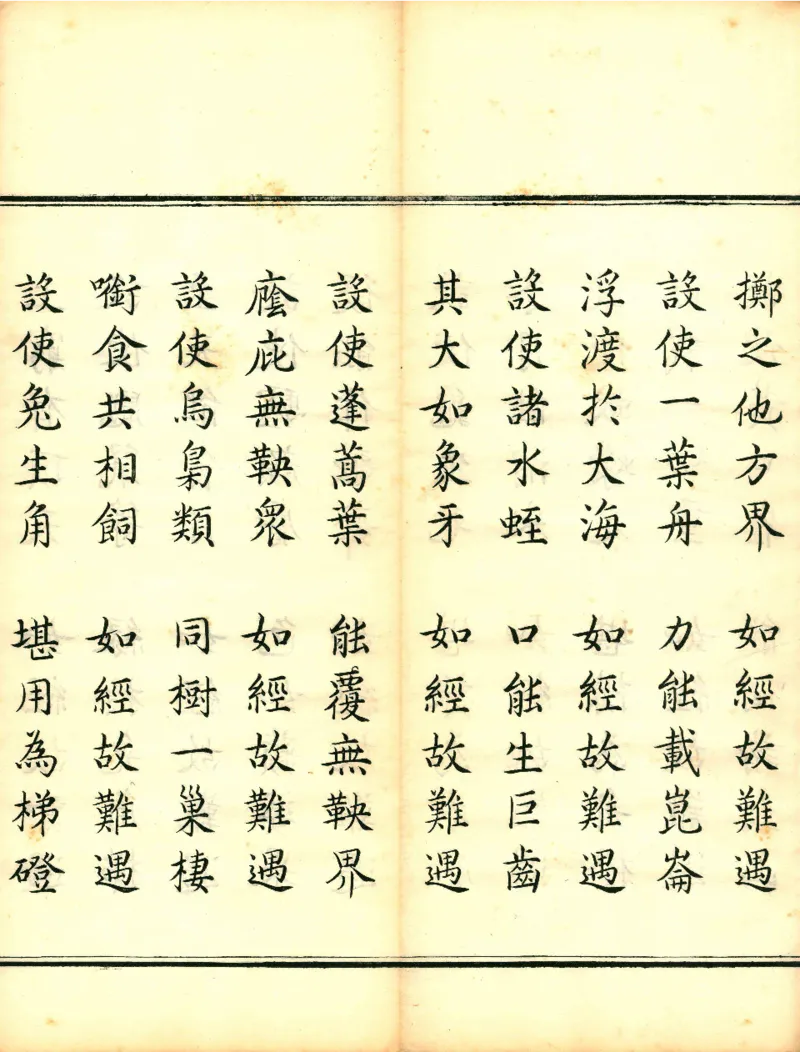 擲之他方界　如經故難遇
設使一葉舟　力能載崑崙
浮渡於大海　如經故難遇
設使諸水蛭　口能生巨齒
其大如象牙　如經故難遇
設使蓬蒿葉　能覆無鞅界
廕庇無鞅眾　如經故難遇
設使烏梟類　同樹一巢棲
㗸食共相飼　如經故難遇
設使兔生角　堪用為梯磴